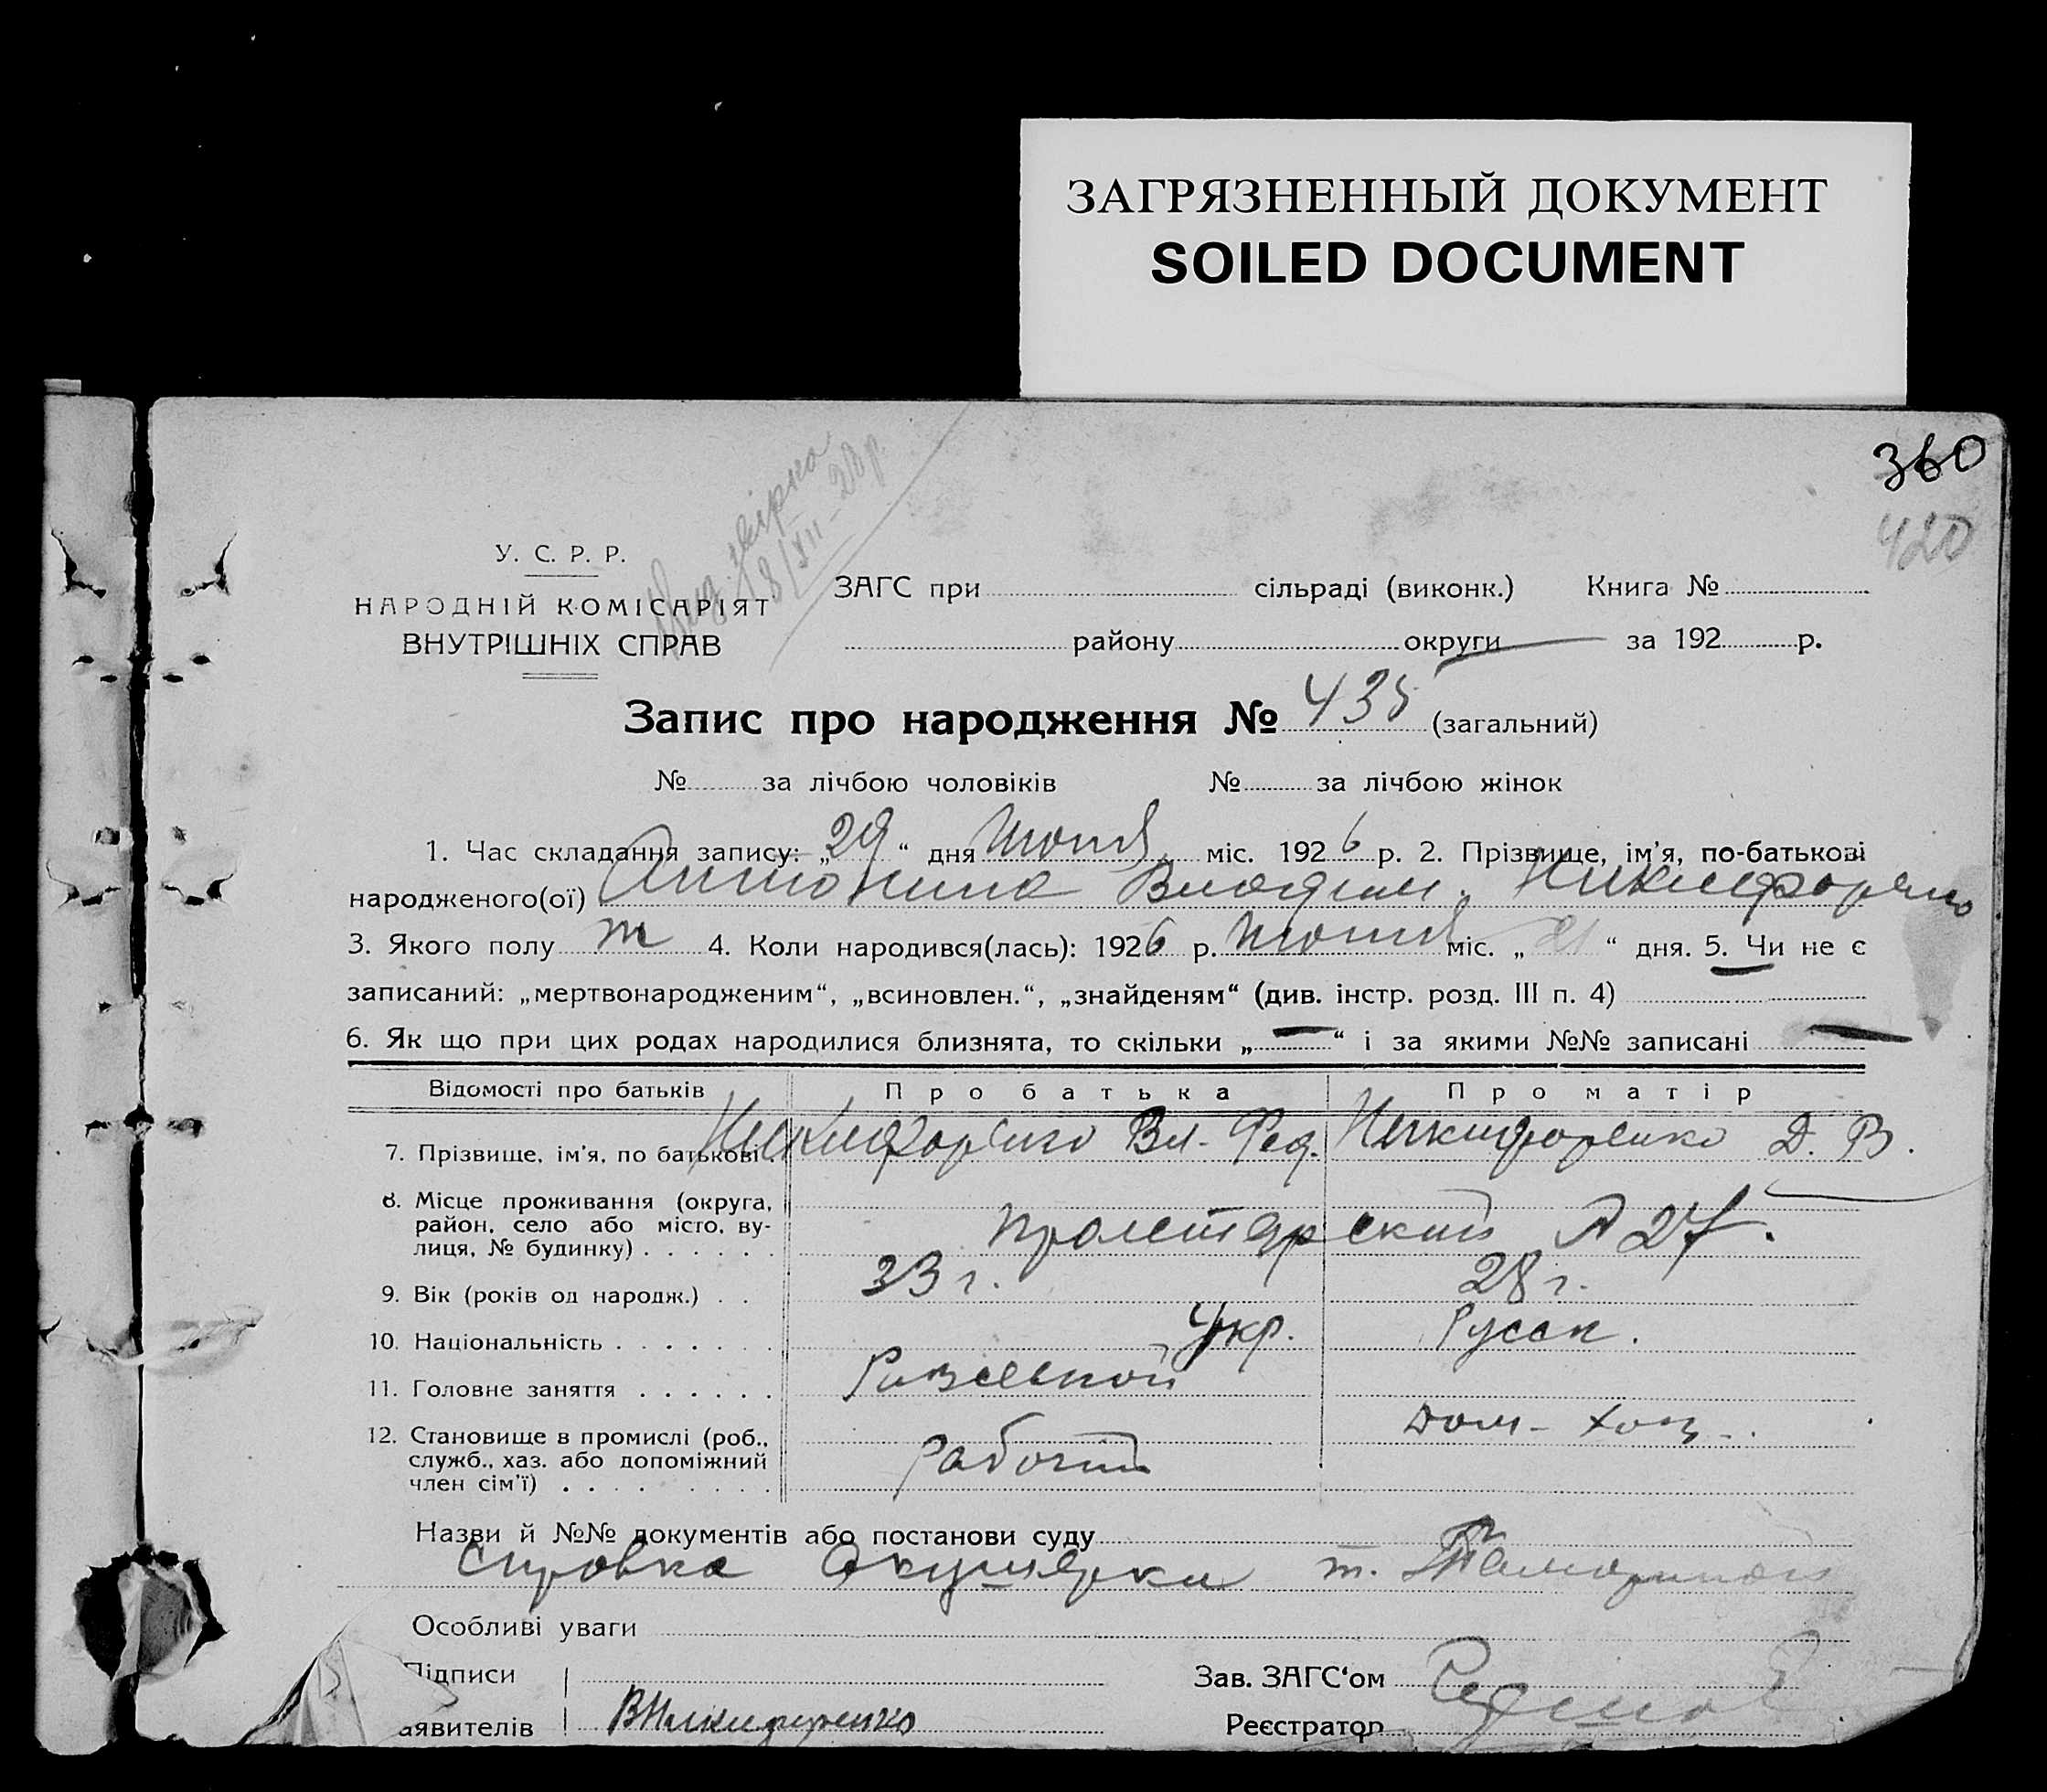 ЗАГРЯЗНЕННЫЙ ДОКУМЕНТ
SOILED DOCUMENT
360
420
У. С. Р. Р.
НАРОДНІЙ КОМІСАРІЯТ
ВНУТРІШНІХ СПРАВ
звірка
18/XII-28р.
ЗАГС при сільраді (виконк.) Книга №
району округи за 192 р.
Запис про народження № 435 (загальний)
№ за лічбою чоловіків № за лічбою жінок
1. Час складання запису: „29“ дня Июня міс. 1926 р. 2. Прізвище, ім’я, по-батькові
народженого(ої) Антонина Владим. Никифоренко
3. Якого полу ж 4. Коли народився(лась): 1926 р. Июня міс. „21“ дня. 5. Чи не є
записаний: „мертвонародженим“, „всиновлен.“, „знайденям“ (див. інстр. розд. III п. 4)
6. Як що при цих родах народилися близнята, то скільки „—“ і за якими №№ записані —
Відомості про батьків Про батька Про матір
7. Прізвище, ім’я, по батькові Никифоренко Вл. Фед. Никифоренко Д. В.
8. Місце проживання (округа,
район, село або місто, ву-
лиця, № будинку) Пролетарский 27.
9. Вік (років од народж.) 33 г. 28 г.
10. Національність Укр. Русск.
11. Головне заняття
12. Становище в промислі (роб., Дом-хоз.
служб., хаз. або допоміжний
член сім’ї) Рабочий
Назви й №№ документів або постанови суду
Справка Акушерки т.
Особливі уваги
Підписи Зав. ЗАГС‘ом
аявителів ВНикифоренко Реєстратор